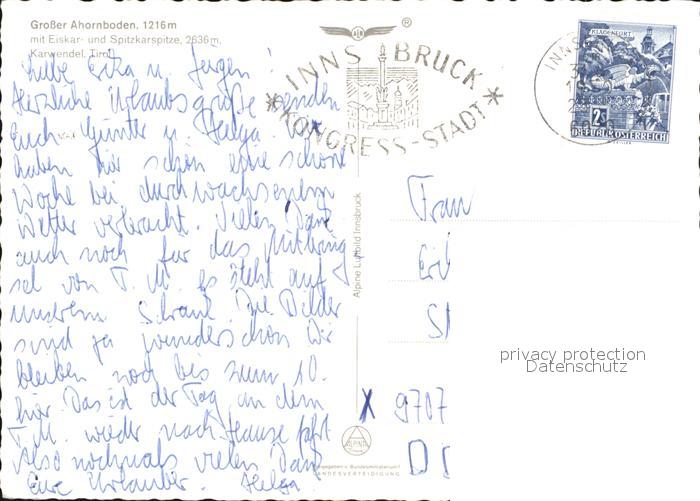 Großer Ahornboden, 1216m
mit Eiskar- und Spitzkarspitze, 2636m,
Karwendel, Tirol
Liebe Erka u. Jürgen!
Herzliche Urlaubsgrüße senden
Euch Günter u. Helga. Wir
haben hier schon eine schöne
Woche bei durchwachsenem
Wetter verbracht. Vielen Dank
auch noch für das Mitbring
sel von T. M. es steht auf
unserem Schrank. Die Bilder
sind ja wunderschön. Wir
bleiben noch bis zum 10.
hier. Das ist der Tag an dem
T.M. wieder nach Hause fährt
Also nochmals vielen Dank
Eure Urlauber. Helga.
INNSBRUCK
KONGRESS-STADT
®
KLAGENFURT
2S
REPUBLIK ÖSTERREICH
Alpine Luftbild Innsbruck
Frau
X 9707
ALPINE
LANDESVERTEIDIGUNG
privacy protection
Datenschutz